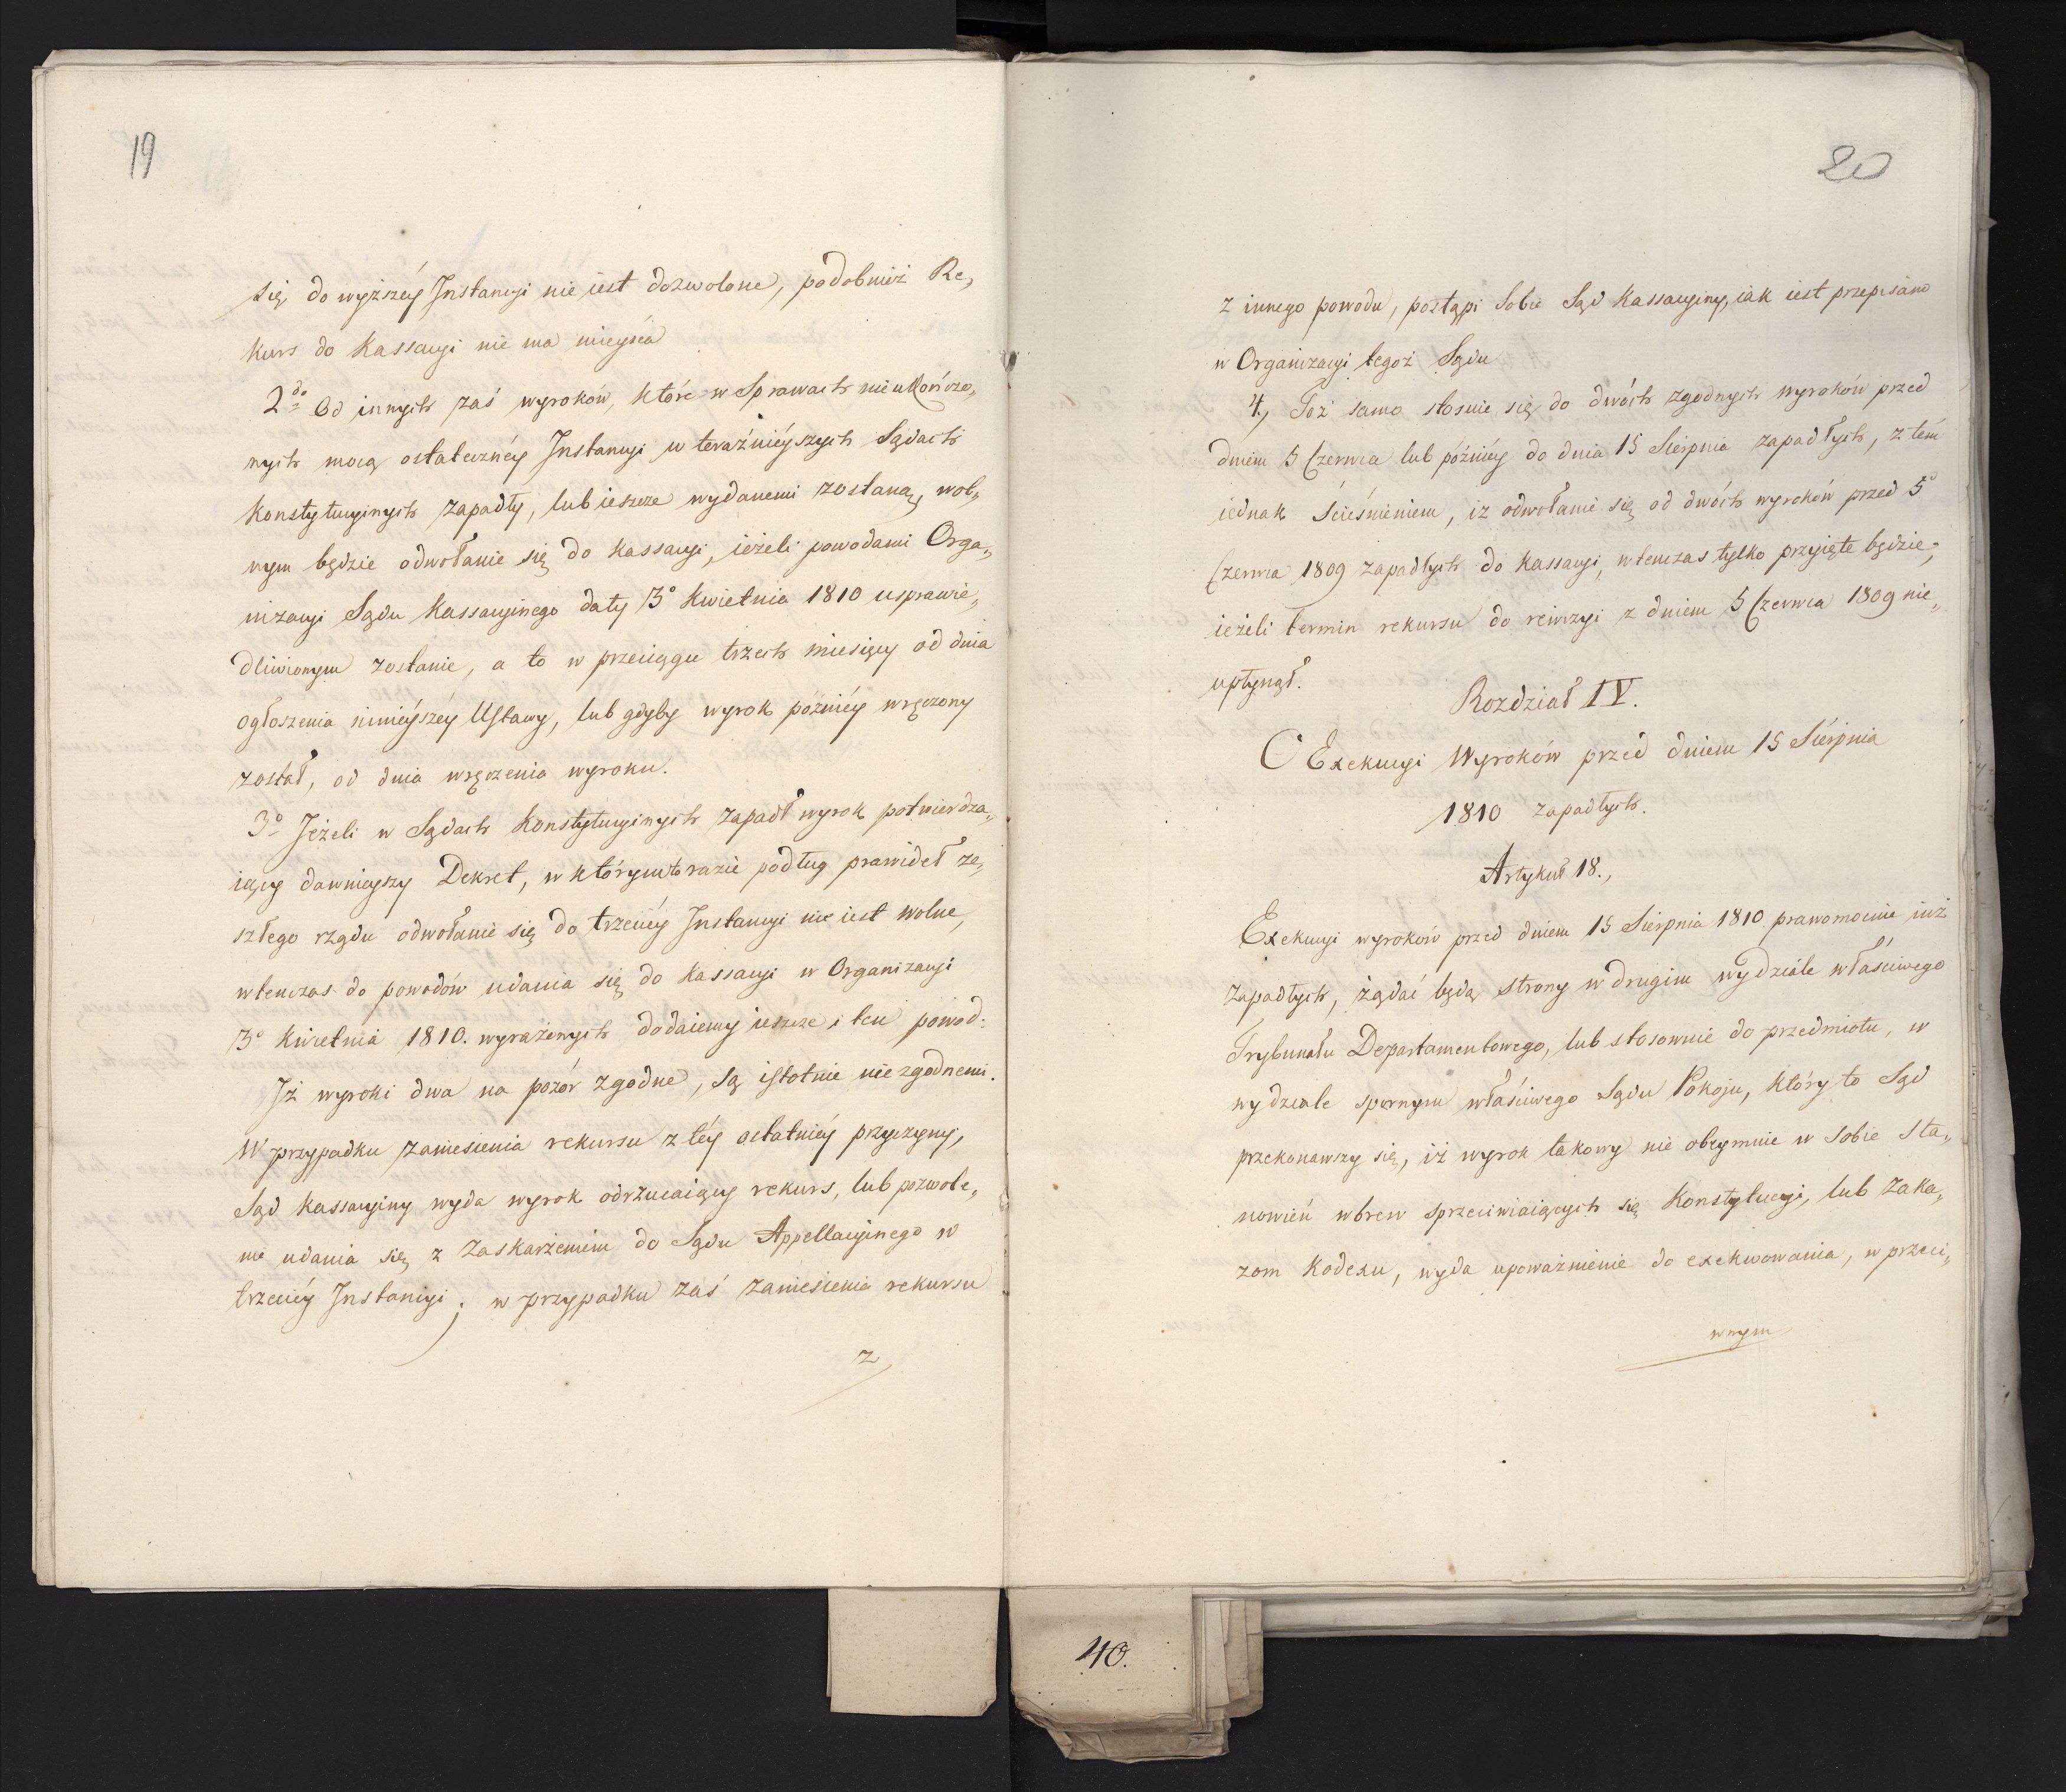 19
się do wyższéy Jnstancyi nie iest dozwolone, podobnież Re„
kurs do Kassacyi nie ma mieysca
2do Od innych zaś wyroków, które w Sprawach nieukończo„
nych mocą ostatecznéy Jnstancyi w teraźnieyszych Sądach
Konstytucyinych zapadły, lub ieszcze wydanemi zostaną, wol„
nym będzie odwołanie się do Kassacyi, ieżeli powodami Orga„
nizacyi Sądu Kassacyinego daty 3° Kwietnia 1810 usprawie„
dliwionym zostanie, a to w przeciągu trzech miesięcy od dnia
ogłoszenia ninieyszéy Ustawy, lub gdyby wyrok późniéy wręczony
został, od dnia wręczenia wyroku.
3° Jeżeli w Sądach Konstytucyinych zapadł wyrok potwierdza„
iący dawnieyszy Dekret, w którymto razie podług prawideł ze„
szłego rządu odwołanie się do trzeciéy Jnstancyi nie iest wolne,
wtenczas do powodów udania się do Kassacyi w Organizacyi
3° Kwietnia 1810. wyrażonych dodaiemy ieszcze i ten powod:
Jż wyroki dwa na pozór zgodne, są istotnie niezgodnemi.
W przypadku zaniesienia rekursu z téy ostatniéy przyczyny,
Sąd Kassacyiny wyda wyrok odrzucaiący rekurs, lub pozwole„
nie udania się z zaskarżeniem do Sądu Appellacyinego w
trzeciéy Jnstancyi; w przypadku zaś zaniesienia rekursu
z
20
z innego powodu, postąpi Sobie Sąd Kassacyiny, iak iest przepisano
w Organizacyi tegoż Sądu
4., Toż samo stosuie się do dwóch zgodnych wyroków przed
dniem 5 Czerwca lub późniéy do dnia 15 Sierpnia zapadłych, z tém
iednak ścieśnieniem, iż odwołanie się od dwóch wyroków przed 5°
Czerwca 1809 zapadłych do Kassacyi, wtenczas tylko przyięte będzie,
ieżeli termin rekursu do rewizyi z dniem 5 Czerwca 1809 nie„
upłynął.
Rozdział IV.
O Exekucyi Wyroków przed dniem 15 Sierpnia
1810 zapadłych.
Artykuł 18.,
Exekucyi wyroków przed dniem 15 Sierpnia 1810 prawomocnie iuż
zapadłych, żądać będą strony w drugim wydziale właściwego
Trybunału Departamentowego, lub stosownie do przedmiotu, w
wydziale spornym właściwego Sądu Pokoju, który to Sąd
przekonawszy się, iż wyrok takowy nie obeymuie w sobie sta„
nowień wbrew sprzeciwiaiących się Konstytucyi, lub zaka„
zom Kodexu, wyda upoważnienie do exekwowania, w przeci„
wnym
40.